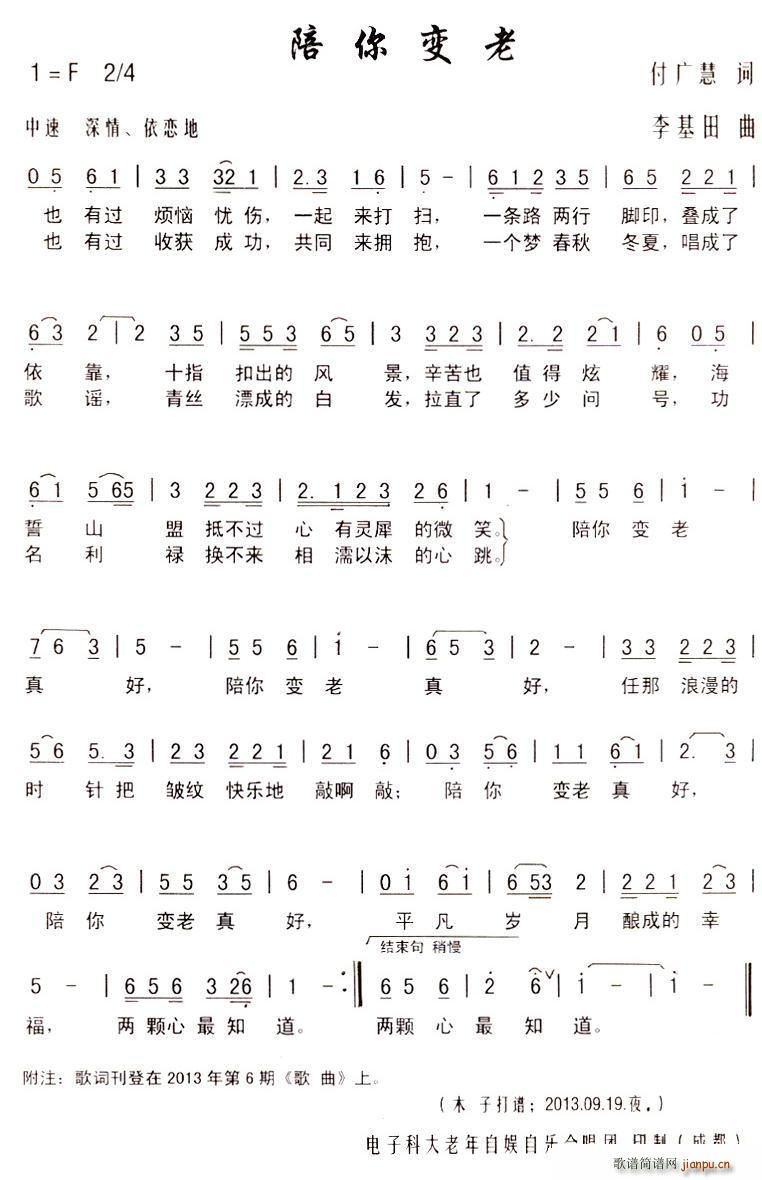 陪你变老
1=F 2/4 付广慧 词
中速 深情、依恋地 李基田 曲
0 5 6 1 | 3 3 32 1 | 2. 3 1 6 | 5 - | 6 1 2 3 5 | 6 5 2 2 1 |
也 有过 烦恼 忧伤,一起 来打 扫, 一条路 两行 脚印,叠成了
也 有过 收获 成功,共同 来拥 抱, 一个梦 春秋 冬夏,唱成了
6 3 2 | 2 3 5 | 5 5 3 6 5 | 3 3 2 2 3 | 2. 2 2 1 | 6 0 5 |
依 靠, 十指 扣出的 风 景,辛苦也 值得 炫 耀,海
歌 谣,青丝 漂成的 白 发,拉直了 多少 问 号,功
6 1 5 65 | 3 2 2 3 | 2. 1 2 3 2 6 | 1 - | 5 5 6 | i - |
誓 山 盟 抵不过 心 有灵犀 的微 笑。 陪你 变 老
名 利 禄 换不来 相 濡以沫 的心 跳。
7 6 3 | 5 - | 5 5 6 | i - | 6 5 3 | 2 - | 3 3 2 2 3 |
真 好, 陪你 变 老 真 好, 任那 浪漫的
5 6 5. 3 | 2 3 2 2 1 | 2 1 6 | 0 3 5 6 | 1 1 6 1 | 2. 3 |
时 针 把 皱纹 快乐地 敲啊 敲; 陪 你 变老 真 好,
0 3 2 3 | 5 5 3 5 | 6 - | 0 i 6 i | 6 53 2 | 2 2 1 2 3 |
陪 你 变老 真 好, 平 凡 岁 月 酿成的 幸
结束句 稍慢
5 - | 6 5 6 3 26 | 1 - :‖ 6 5 6 | 2 6 ∨ | i - | i - ‖
福, 两 颗心 最 知 道。 两颗 心 最 知 道。
附注:歌词刊登在2013年第6期《歌 曲》上。
(木 子打谱;2013.09.19.夜。)
电子科大老年自娱自乐合唱团 印制(成都)
歌谱简谱网 jianpu.cn